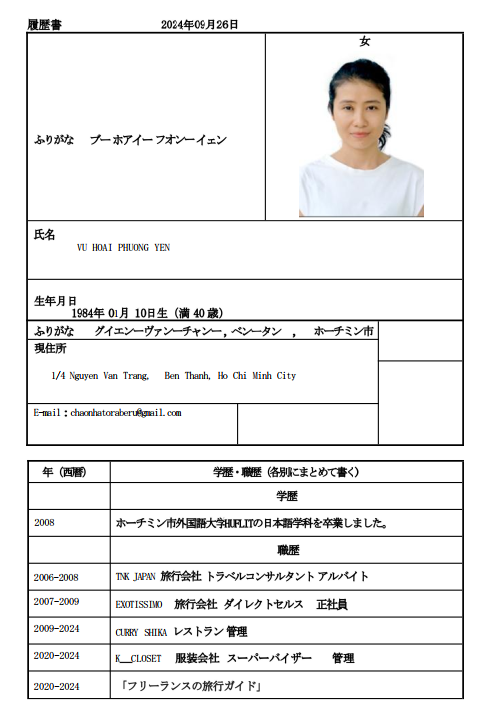 履歴書 2024年09月26日
女
ふりがな ブーホアイーフオンーイェン
氏名
VU HOAI PHUONG YEN
生年月日
1984年 01月 10日生 (満 40 歳)
ふりがな グイエンーヴァンーチャンー, ベンータン , ホーチミン市
現住所
1/4 Nguyen Van Trang, Ben Thanh, Ho Chi Minh City
E-mail：chaonhatoraberu@gmail.com
年 (西暦) 学歴・職歴 (各別にまとめて書く)
学歴
2008 ホーチミン市外国語大学HUFLITの日本語学科を卒業しました。
職歴
2006-2008 TNK JAPAN 旅行会社 トラベルコンサルタント アルバイト
2007-2009 EXOTISSIMO 旅行会社 ダイレクトセルス 正社員
2009-2024 CURRY SHIKA レストラン 管理
2020-2024 K__CLOSET 服装会社 スーパーバイザー 管理
2020-2024 「フリーランスの旅行ガイド」